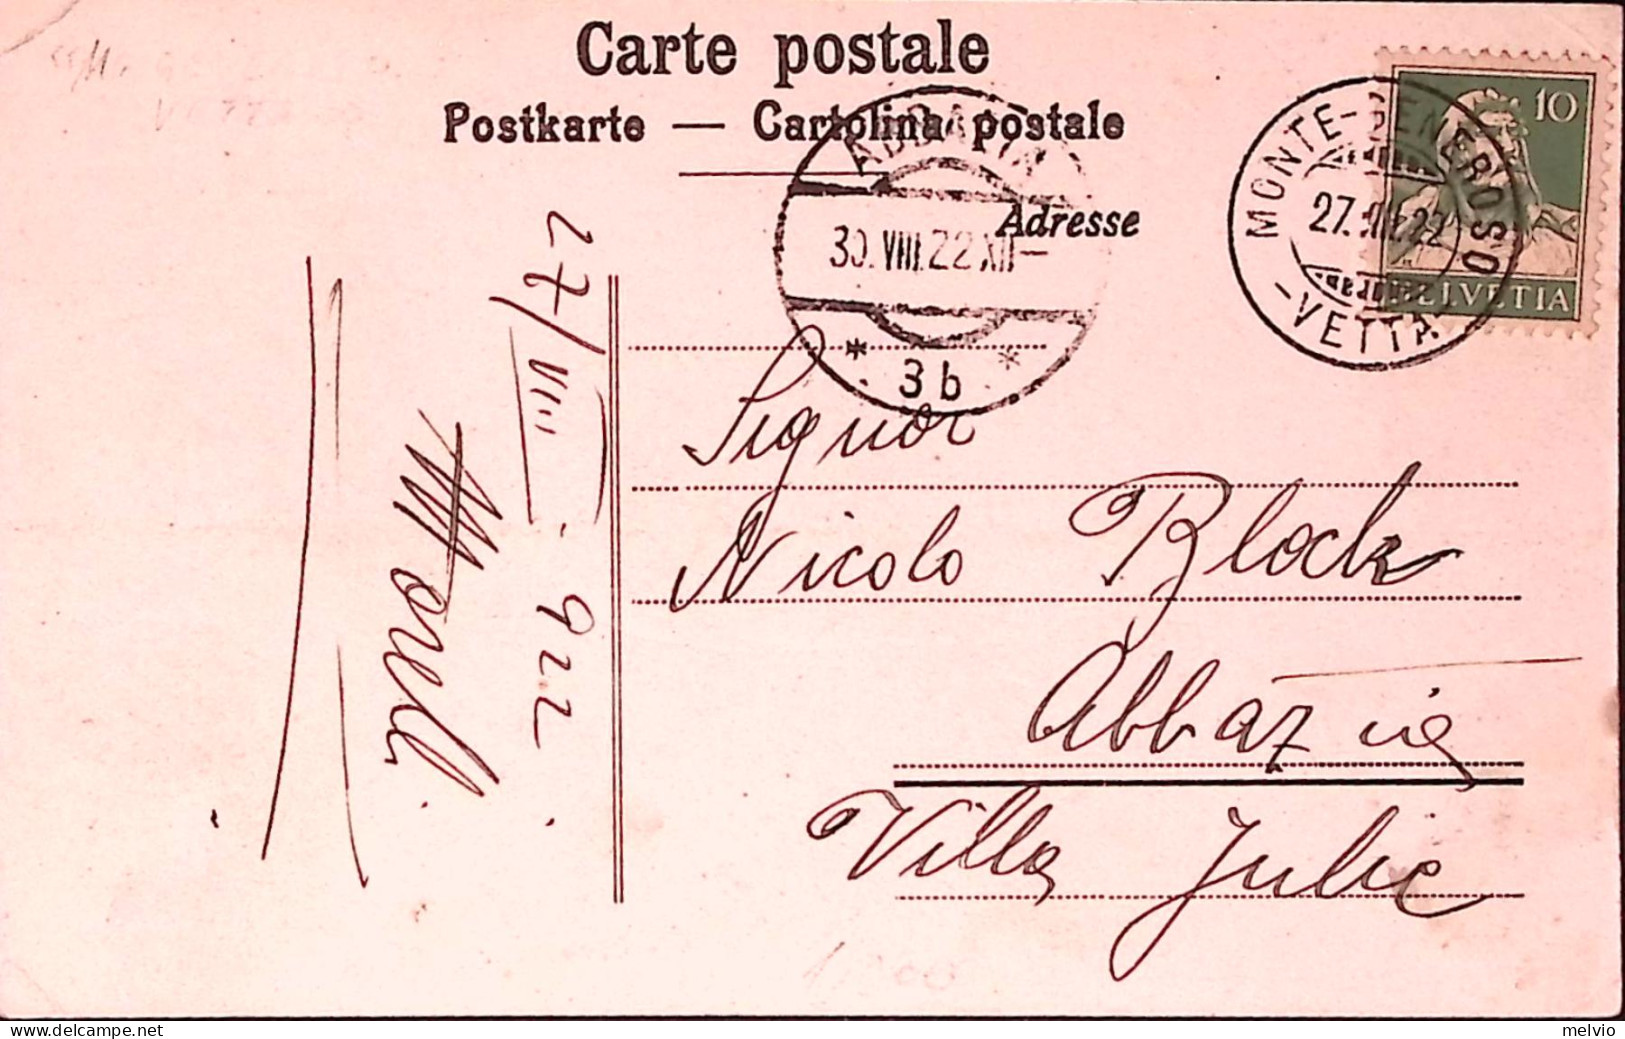 Carte postale
Postkarte — Cartolina postale
Adresse
ABBAZIA
30.VIII.22.XII–
* 3b *
MONTE-GENEROSO
27.VIII.22
-VETTA-
10
HELVETIA
27/VIII. 922
Morelli
Signor
Nicolo Block
Abbazia
Villa Julie
melvio